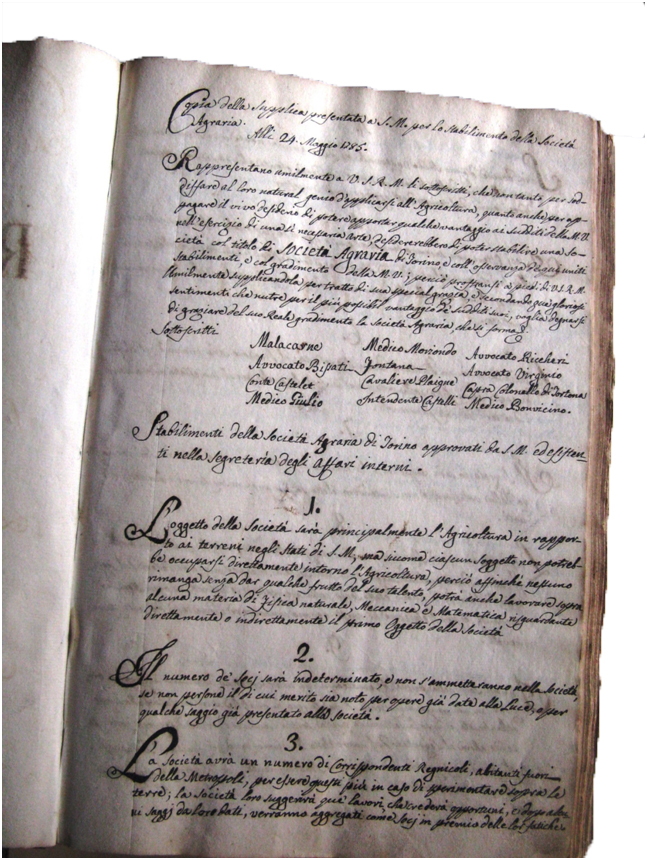 Copia della Supplica presentata a S. M. per lo stabilimento della Società
Agraria.
Alli 24. Maggio 1785.
Rappresentano umilmente a V. S. R. M. li sottoscritti, che non tanto per sod-
disfare al loro natural genio d'applicarsi all'Agricoltura, quanto anche per ap-
pagare il vivo desiderio di potere apportar qualche vantaggio ai sudditi della M. V.
nell'esercizio di una sì necessaria Arte, desidererebbero di poter stabilire una So-
cietà col titolo di Società Agraria di Torino e coll'osservanza degli uniti
stabilimenti, e col gradimento della M. V.; perciò prostransi a' piedi di V. S. R. M.
Umilmente supplicandola per tratto di sua special grazia, e secondando que' gloriosi
sentimenti che nutre per il più possibil vantaggio de' sudditi suoi, voglia degnarsi
di graziare del suo Reale gradimento la Società Agraria che si forma
Sottoscritti
Malacarne Medico Moriondo Avvocato Riccheri
Avvocato Bissati Fontana Avvocato Virginio
Conte Castelet Cavaliere Plaigne Colonello di Tortona
Medico Giulio Intendente Castelli Medico Bonvicino.
Stabilimenti della Società Agraria di Torino approvati da S. M. ed esisten-
ti nella Segreteria degli affari interni.
1.
L'oggetto della Società sarà principalmente l'Agricoltura in rappor-
to ai terreni negli Stati di S. M., ma siccome ciascun Soggetto non potreb-
be occuparsi direttamente intorno l'Agricoltura, perciò affinché nessuno
rimanga senza dar qualche frutto del suo talento, potrà anche lavorare sopra
alcuna materia di Fisica naturale, Meccanica e Matematica risguardante
direttamente o indirettamente il primo Oggetto della Società
2.
Il numero de' Socj sarà indeterminato, e non s'ammetteranno nella Società,
se non persone il di cui merito sia noto per opere già date alla Luce, o per
qualche saggio già presentato alla Società.
3.
La Società avrà un numero di Corrispondenti Regnicoli, abitanti fuori
della Metropoli, per essere questi più in caso di sperimentare sopra le
terre; la Società loro suggerirà que' lavori, che crederà opportuni, e dopo alcu-
ni saggj da loro dati, verranno aggregati come Socj in premio delle lor fatiche.